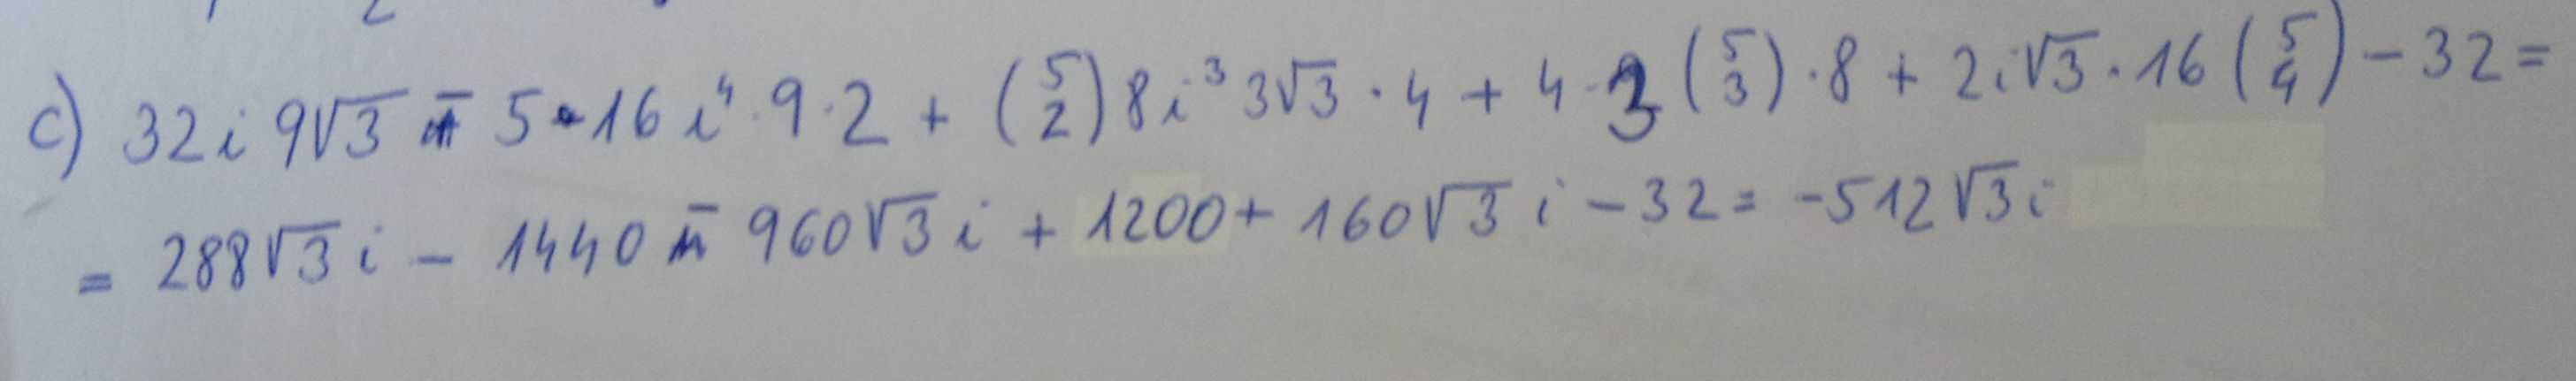 c) 32i 9√3 - 5·16 i⁴·9·2 + (5 2) 8i³ 3√3 · 4 + 4·3 (5 3) · 8 + 2i√3 · 16 (5 4) - 32 =
= 288√3 i - 1440 - 960√3 i + 1200 + 160√3 i - 32 = -512√3 i